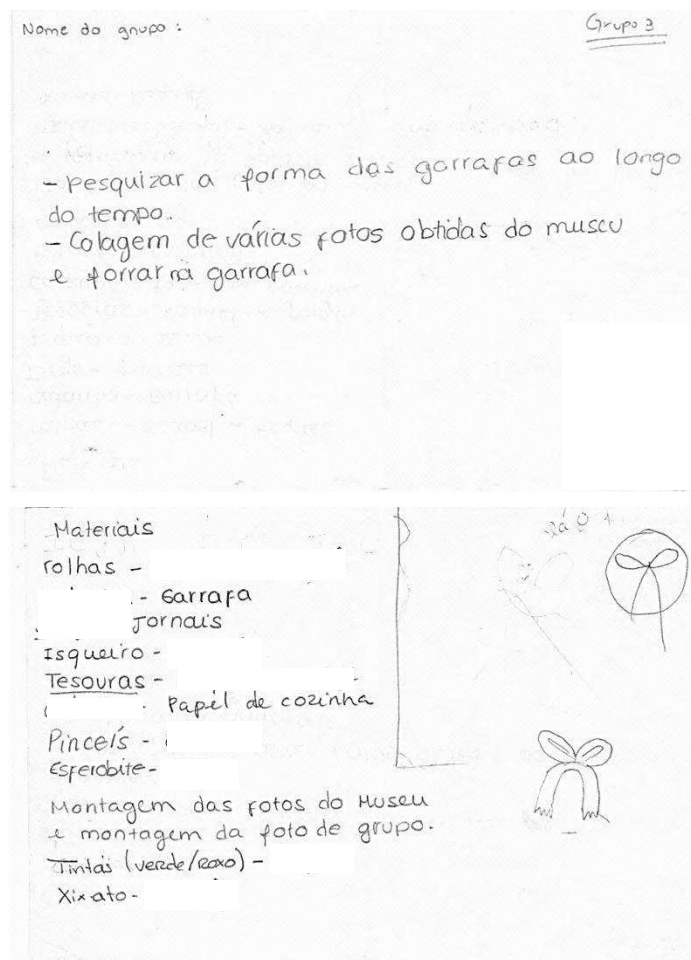 Nome do grupo :
Grupo 3
- Pesquizar a forma das garrafas ao longo
do tempo.
- Colagem de várias fotos obtidas do museu
e forrar na garrafa.
Materiais
rolhas -
- Garrafa
Jornais
Isqueiro -
Tesouras -
Papel de cozinha
Pinceís -
Esferobite -
Montagem das fotos do Museu
e montagem da foto de grupo.
Tintas (verde/roxo) -
Xixato -